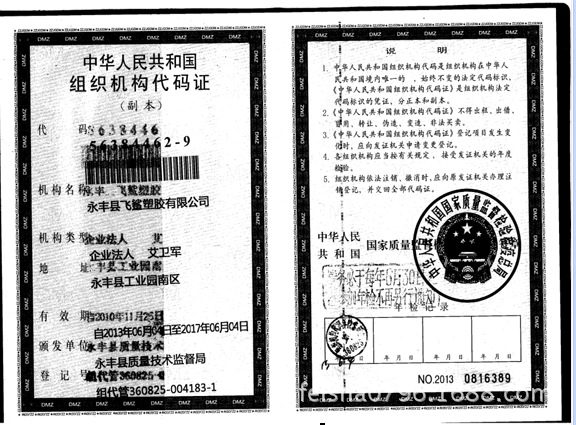 中华人民共和国
组织机构代码证
(副本)
代 码
56384462-9
机构名称
永丰县飞鲨塑胶有限公司
机构类型
企业法人 艾卫军
地 址
永丰县工业园南区
有 效 期
自2013年06月04日至2017年06月04日
颁发单位
永丰县质量技术监督局
登 记 号
组代管360825-004183-1
说 明
1. 中华人民共和国组织机构代码是组织机构在中华人
民共和国境内唯一的、始终不变的法定代码标识,
《中华人民共和国组织机构代码证》是组织机构法定
代码标识的凭证,分正本和副本。
2. 《中华人民共和国组织机构代码证》不得出租、出借、
冒用、转让、伪造、变造、非法买卖。
3. 《中华人民共和国组织机构代码证》登记项目发生变
化时,应向发证机关申请变更登记。
4. 各组织机构应当按有关规定,接受发证机关的年度
检验。
5. 组织机构依法注销、撤消时,应向原发证机关办理注
销登记,并交回全部代码证。
中华人民
共和国
国家质量监督
中华人民共和国国家质量监督检验检疫总局
年检记录
年 月 日
年 月 日
年 月 日
NO.2013 0816389
feisha0796.1688.com